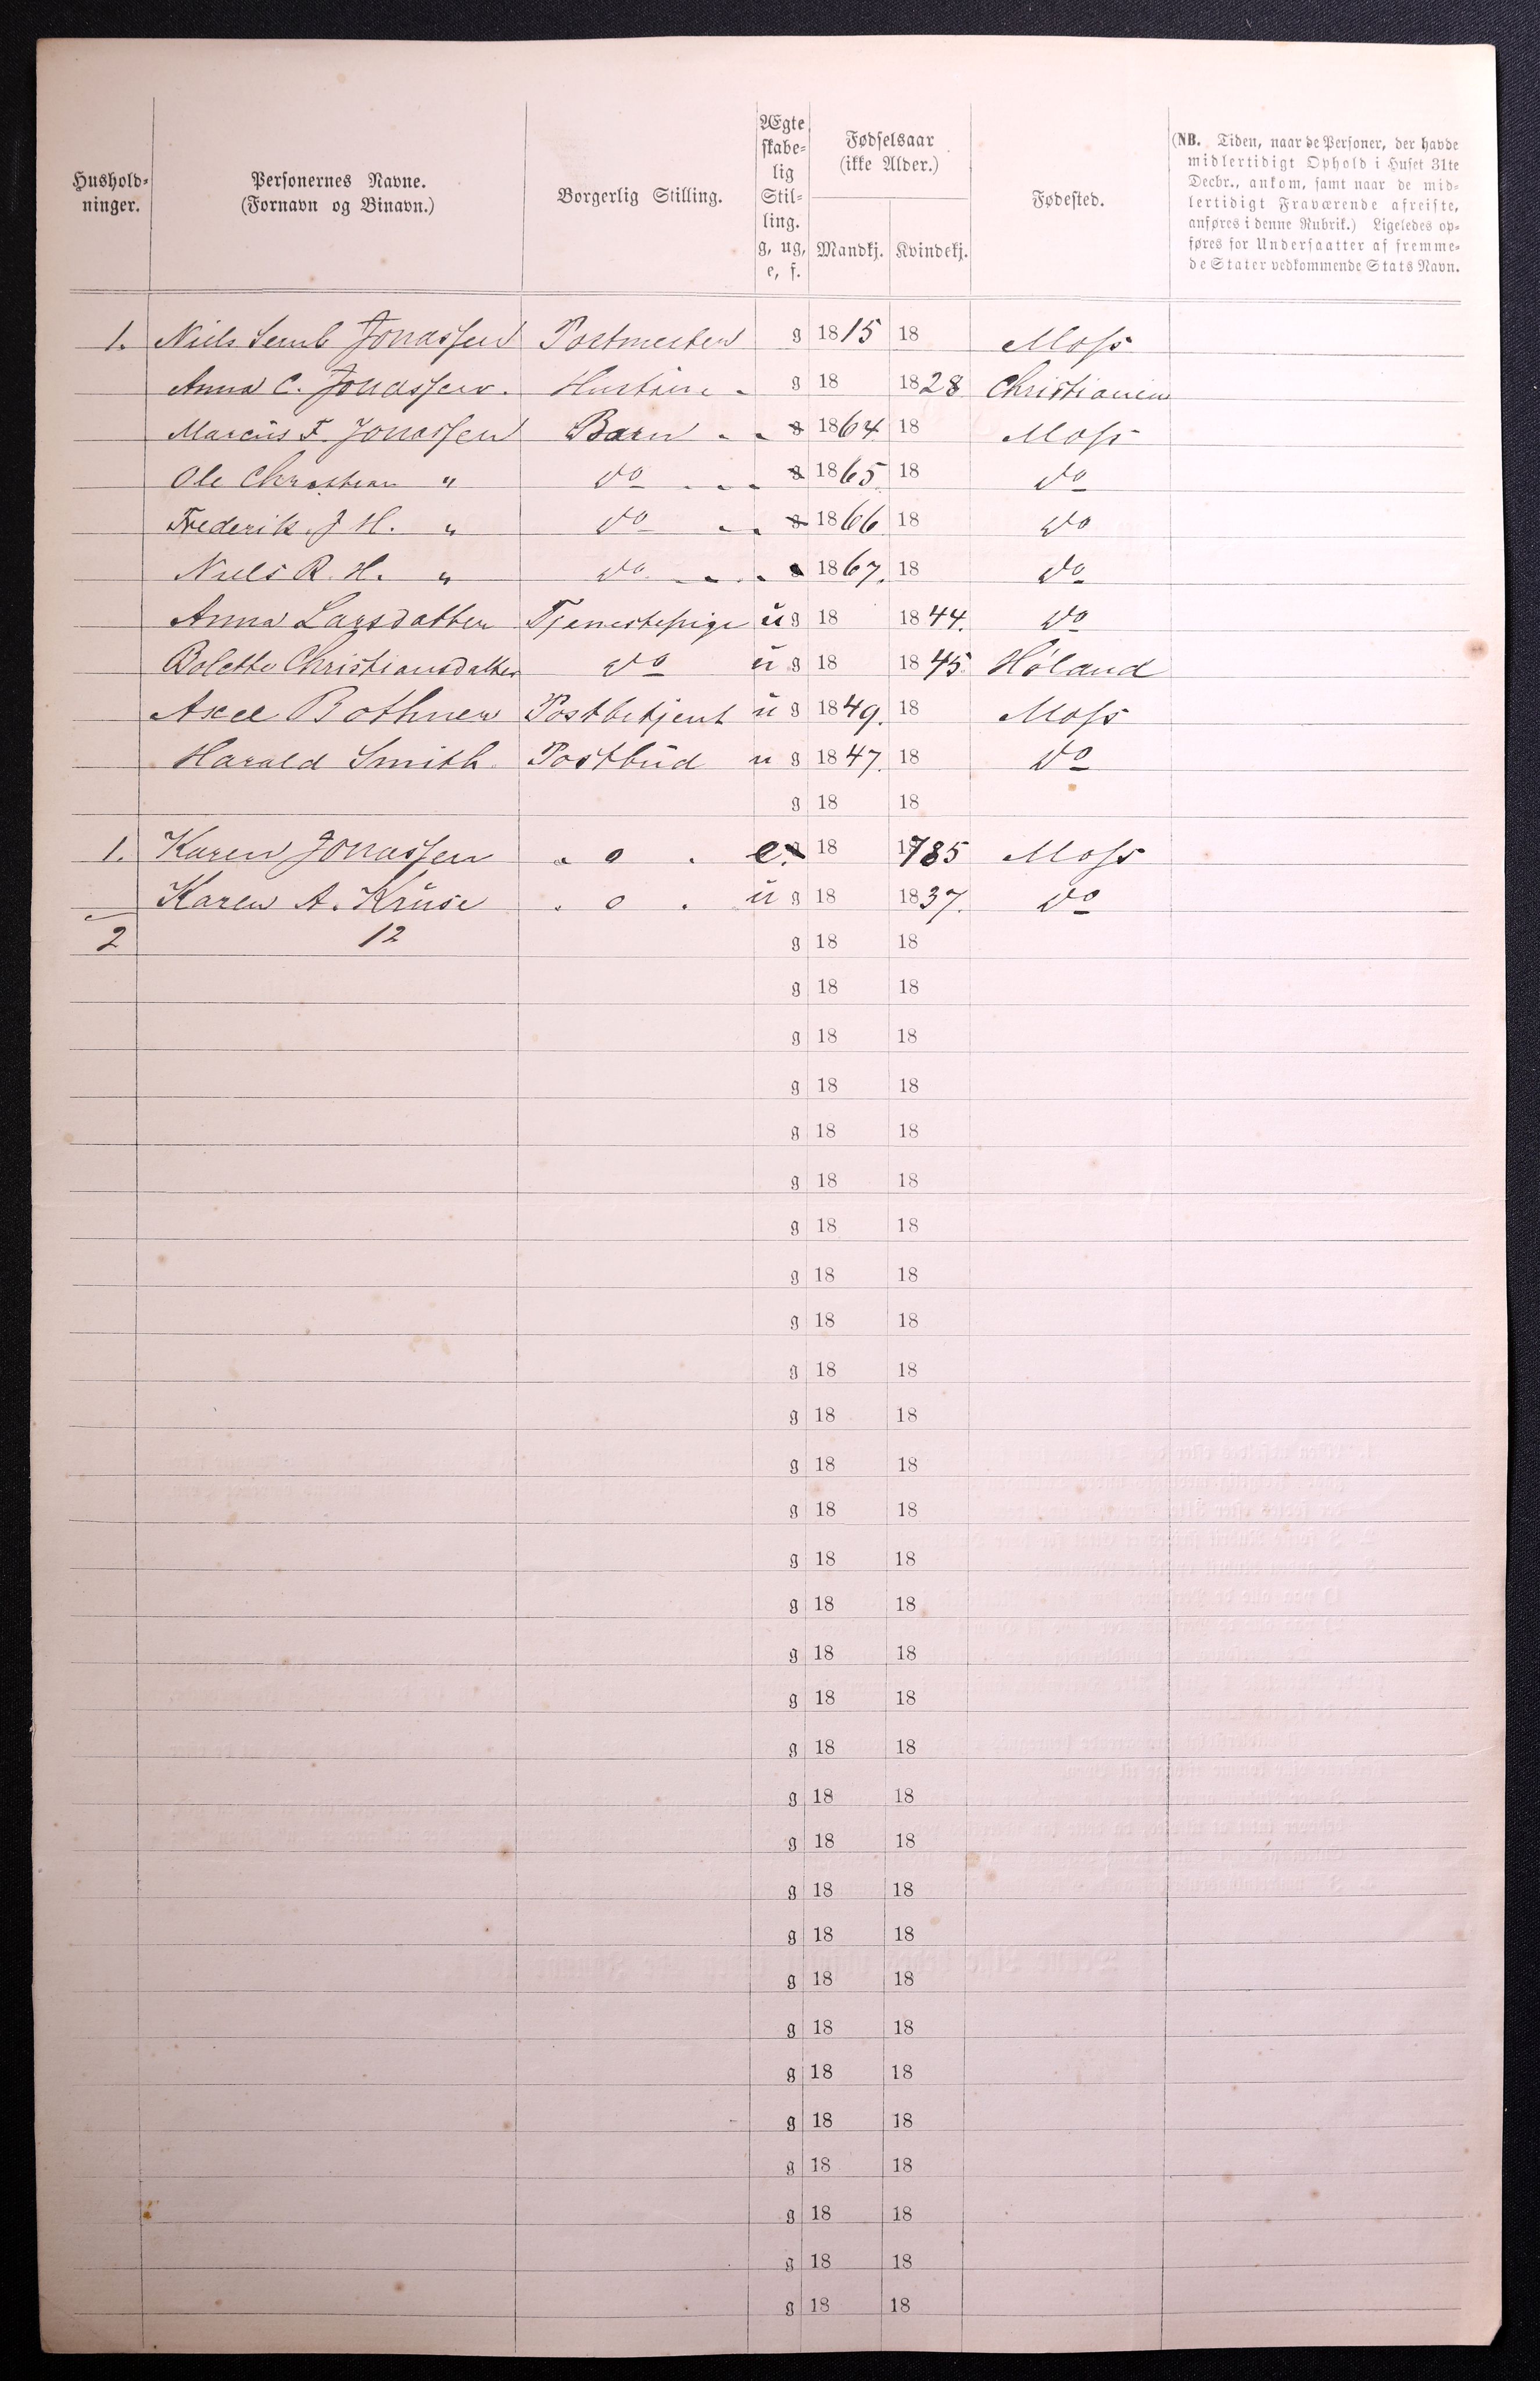 Hushold-
ninger.
Personernes Navne.
(Fornavn og Binavn.)
Borgerlig Stilling.
Ægte
skabe-
lig
Stil-
ling.
g, ug,
e, f.
Fødselsaar
(ikke Alder.)
Mandkj. Kvindekj.
Fødested.
(NB. Tiden, naar de Personer, der havde
midlertidigt Ophold i Huset 31te
Decbr., ankom, samt naar de mid-
lertidigt Fraværende afreiste,
anføres i denne Rubrik.) Ligeledes op-
føres for Undersaatter af fremme-
de Stater vedkommende Stats Navn.
1. Niels Semb Jonassen Postmester g 1815 18 Moss
Anna C. Jonassen. Hustru g 18 1828 Christiania
Marcus F. Jonassen Barn g 1864 18 Moss
Ole Christian " do g 1865 18 do
Frederik J H. " do g 1866 18 do
Niels R. H. " do 1867. 18 do
Anna Larsdatter Tjenestepige ug 18 1844. do
Bolette Christiansdatter do ug 18 1845. Høland
Axel Bothner Postbetjent ug 1849. 18 Moss
Harald Smith Postbud ug 1847. 18 do
g 18 18
1. Karen Jonassen " 0 " e. 18 1785 Moss
Karen A. Kruse " 0 " ug 18 1837. do
2 12 g 18 18
g 18 18
g 18 18
g 18 18
g 18 18
g 18 18
g 18 18
g 18 18
g 18 18
g 18 18
g 18 18
g 18 18
g 18 18
g 18 18
g 18 18
g 18 18
g 18 18
g 18 18
g 18 18
g 18 18
g 18 18
g 18 18
g 18 18
g 18 18
g 18 18
g 18 18
g 18 18
g 18 18
g 18 18
g 18 18